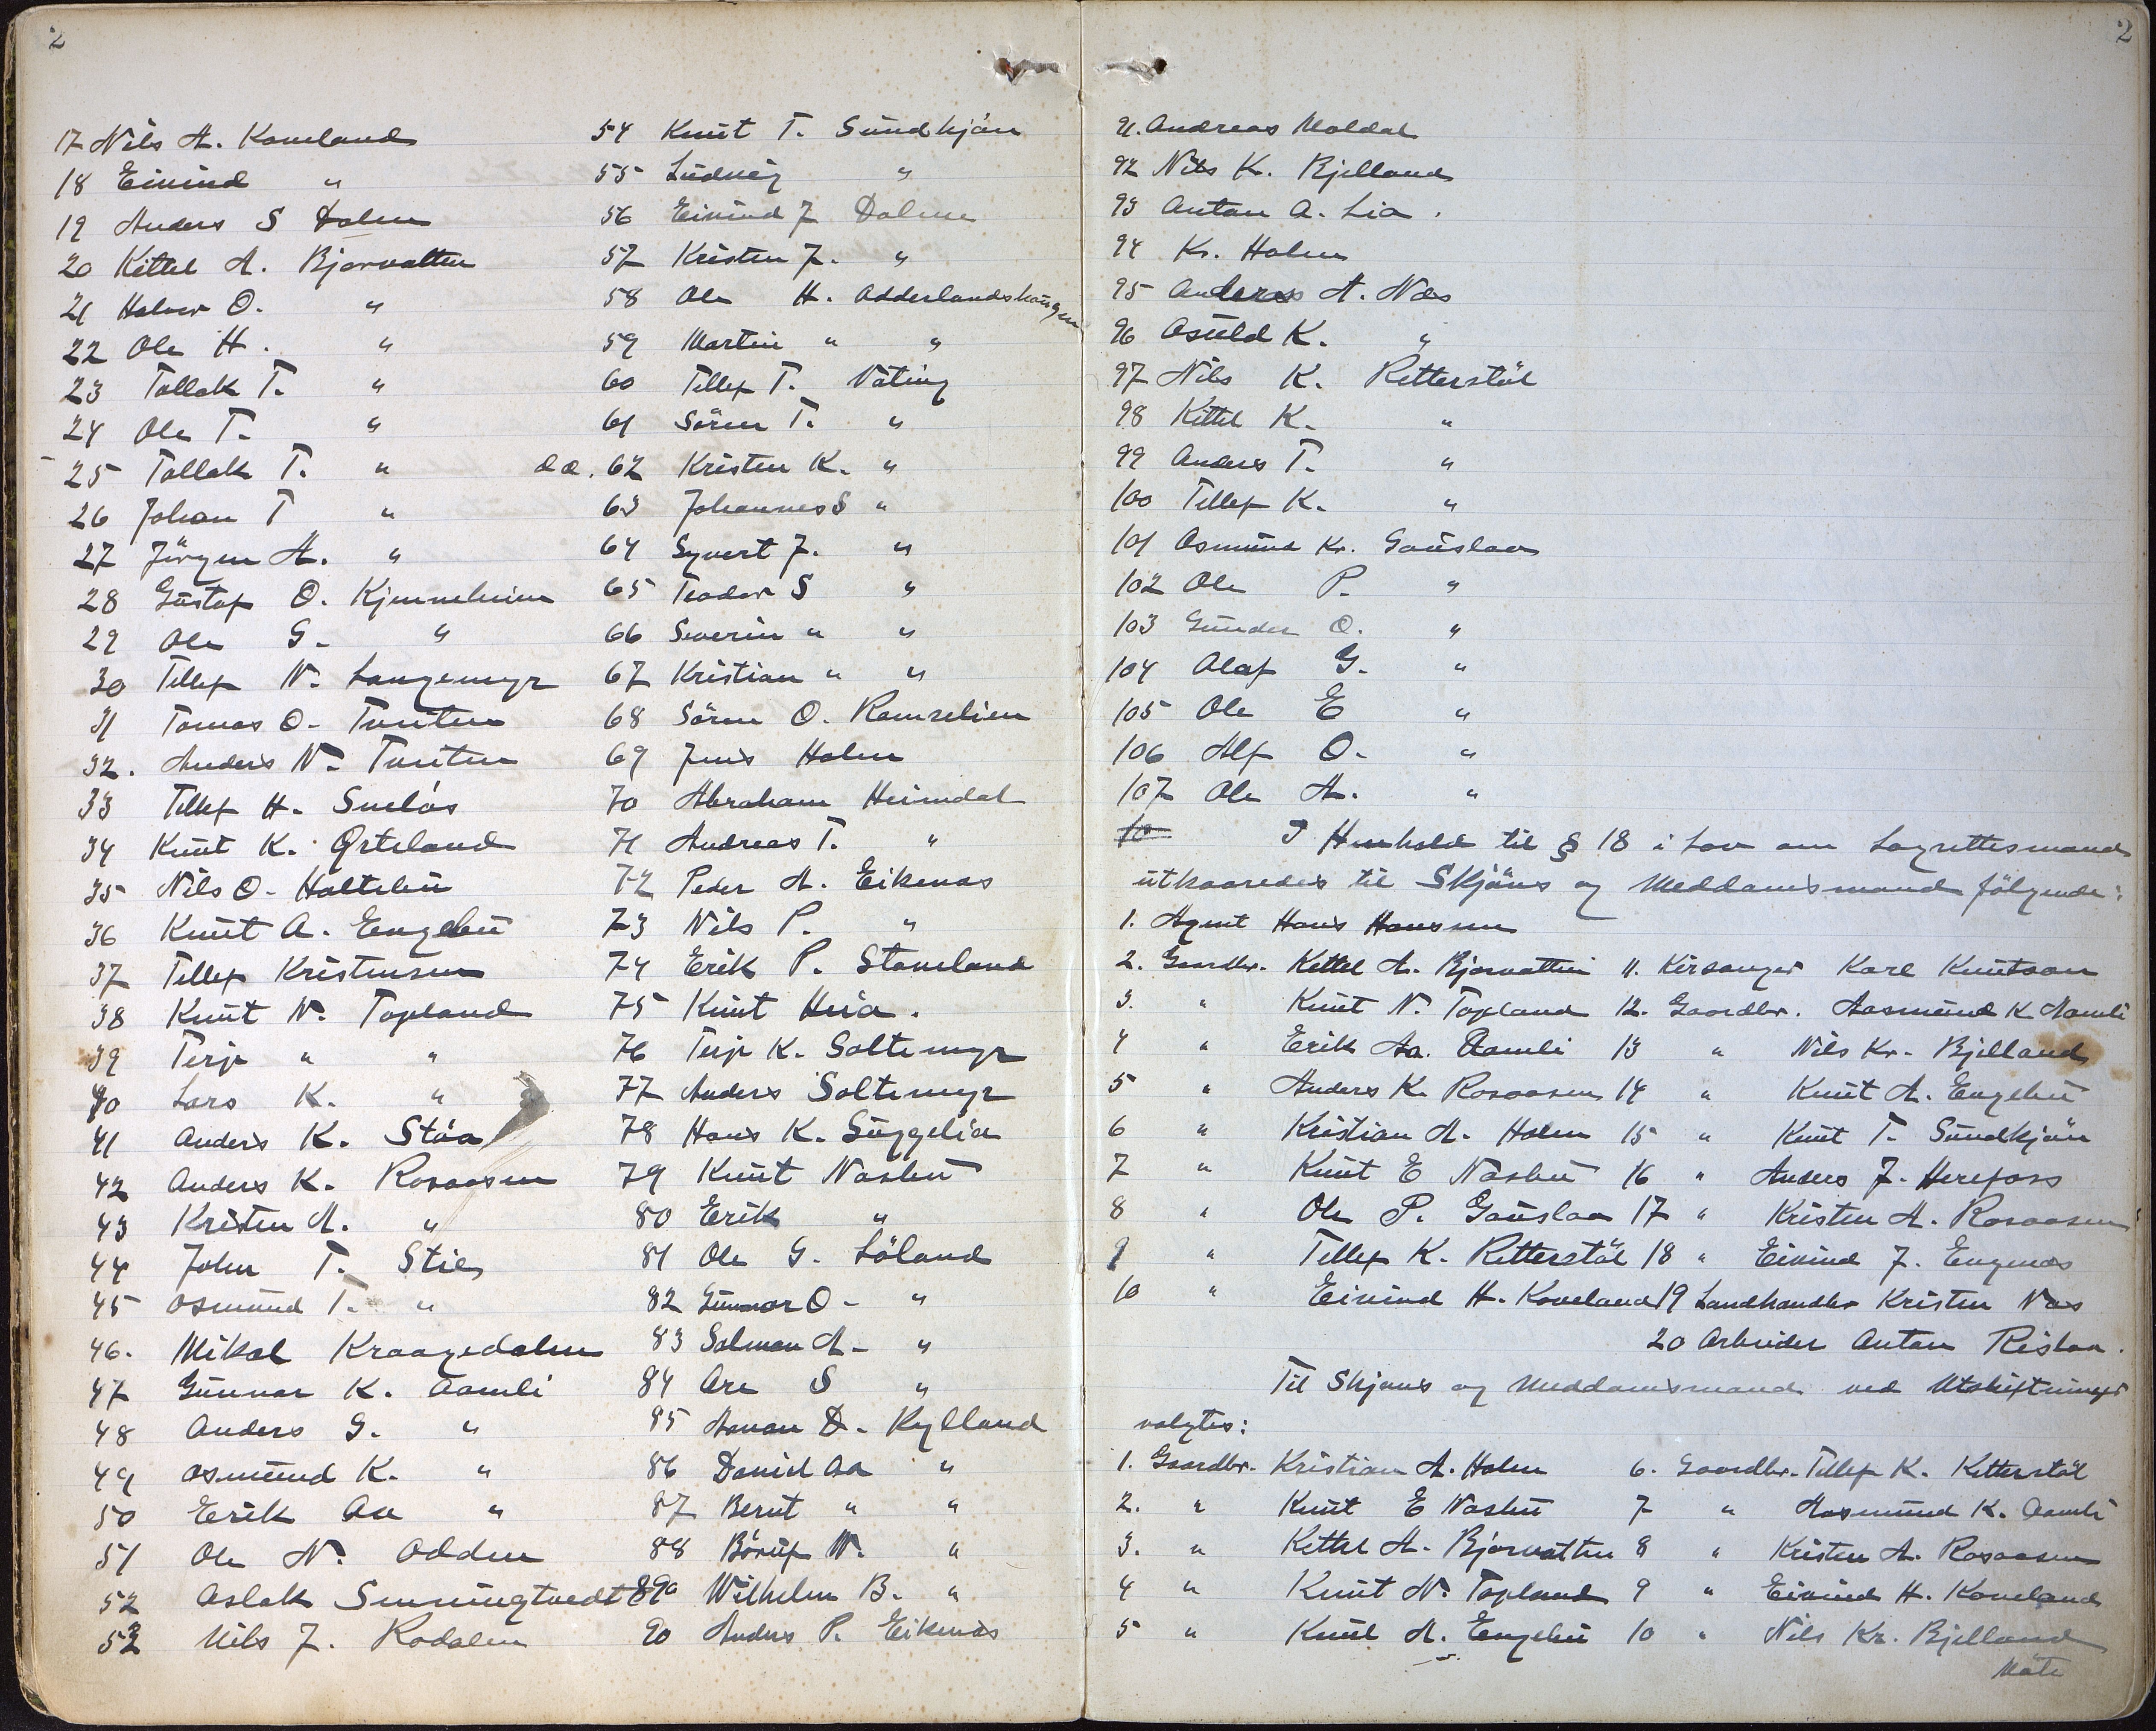 2
17 Nils A. Kaveland
18 Eivind "
19 Anders S Dalen
20 Kittel A. Bjorvatten
21 Halvor O. "
22 Ole H. "
23 Tallak T. "
24 Ole T. "
25 Tallak T. "
26 Johan T "
27 Jörgen A. "
28 Gustaf O. Kjemmeheim
29 Ole G. "
30 Tellef N. Langemyr
31 Tomas O. Tveiten
32. Anders N. Tveiten
33 Tellef H. Sveläs
34 Knut K. Örteland
35 Nils O. Haltebu
36 Knut A. Engebu
37 Tellef Kristensen
38 Knut N. Topland
39 Terje " "
40 Lars K. "
41 Anders K. Stöa
42 Anders K. Rosaasen
43 Kristen A. "
44 John T. Stie
45 Osmund T. "
46. Mikal Kraagedalen
47 Gunnar K. Aamli
48 Anders G. "
49 Osmund K. "
50 Erik Aa "
51 Ole N. Odden
52 Aslak Senningtvedt
53 Nils J. Rodalen
54 Knut T. Sundkjän
55 Ludvig "
56 Eivind J Dalene
57 Kristen J. "
58 Ole H. Adderlandshaugen
59 Martin " "
60 Tellef T. Väting
61 Sören T. "
62 Kristen K. "
63 Johannes S "
64 Syvert J. "
65 Teodor S "
66 Severin " "
67 Kristian " "
68 Sören O. Ramselien
69 Jens Holen
70 Abraham Heimdal
71 Andreas T. "
72 Peder A. Eikenäs
73 Nils P. "
74 Erik P. Staveland
75 Knut Heia.
76 Terje K. Saltemyr
77 Anders Saltemyr
78 Hans K. Suggelia
79 Knut Näsbu
80 Erik "
81 Ole G. Löland
82 Gunnar O. "
83 Salman A. "
84 Are S "
85 Aanan D. Kylland
86 David Aa "
87 Berut " "
88 Böruf N. "
89 Wilhelm B. "
90 Anders P. Eikenäs
2
91. Andreas Moldal
92 Nils K. Bjelland
93 Anton A. Lia.
94 Kr. Holen
95 Anders A. Näs
96 Osuld K. "
97 Nils K. Retterstöl
98 Kittel K. "
99 Anders T. "
100 Tellef K. "
101 Osmund Kr. Gauslaa
102 Ole P. "
103 Gunder O. "
104 Olaf G. "
105 Ole E "
106 Alf O. "
107 Ole A. "
10 I Henhold til § 18 i Lov om Lagrettesmænd
utkaaredes til Skjöns og Meddomsmænd fölgende:
1. Agent Hans Hanssen
2. Gaardbr. Kittel A. Bjorvatten 11. Kirsanger Karl Knutson
3. " Knut N. Topland 12. Gaardbr. Aasmund K Aamli
4 " Erik Aa. Aamli 13 " Nils Kr. Bjelland
5 " Anders K. Rosaasen 14 " Knut A. Engebu
6 " Kristian A. Holen 15 " Knut T. Sundkjän
7 " Knut E Näsbu 16 " Anders J. Herefoss
8 " Ole P. Gauslaa 17 " Kristen A. Rosaasen
9 " Tellef K. Retterstöl 18 " Eivind J. Engenäs
10 " Eivind H. Kaveland 19 Landhandler Kristen Näs
20 Arbeider Anton Rislaa.
Til Skjöns og Meddomsmænd ved Utskiftninger
valgtes:
1. Gaardbr. Kristian A. Holen 6. Gaardbr. Tellef K. Retterstöl
2. " Knut E Näsbu 7 " Aasmund K. Aamli
3. " Kittel A. Bjorvatten 8 " Kristen A. Rosaasen
4 " Knut N. Topland 9 " Eivind H. Kaveland
5 " Knut A. Engebu 10 " Nils Kr. Bjelland
Möte